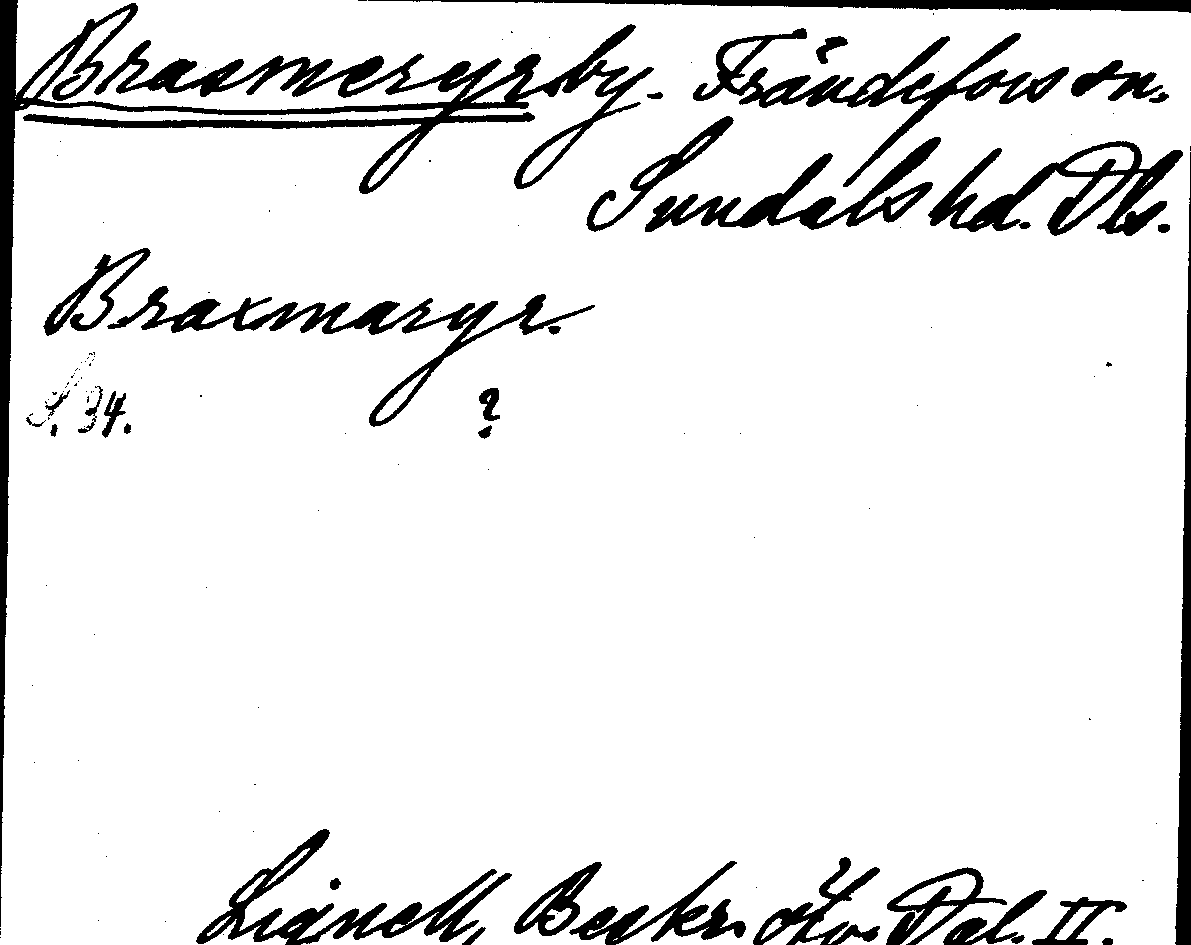 Brasmeryr. by. Frändefors sn.
Sundals hd. Dls.
Braxmaryr.
S. 34. ?
Lignell, Beskr. öfv. Dal. II.